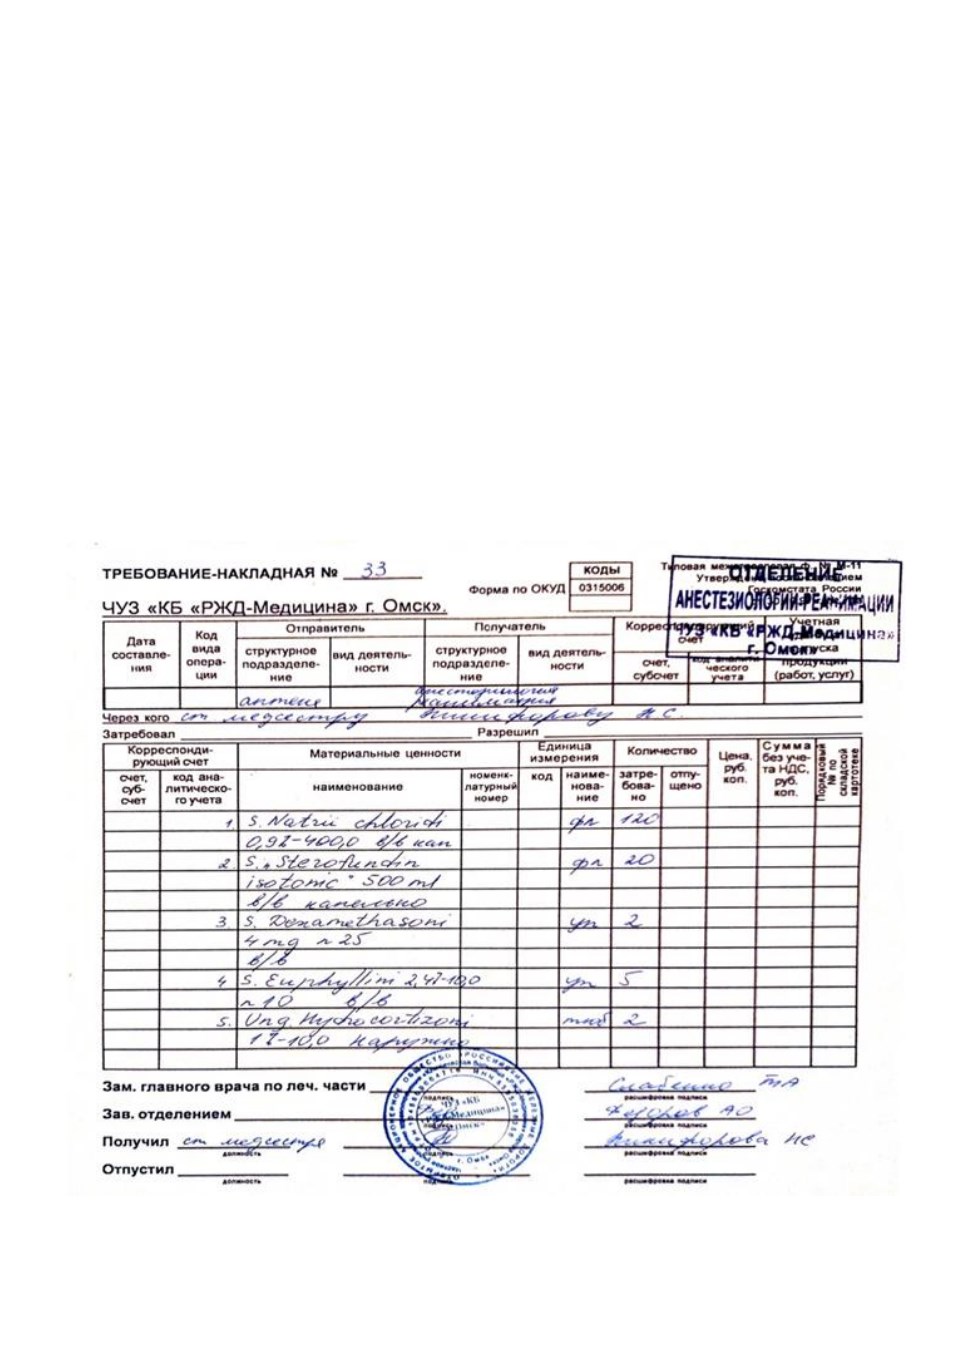 ТРЕБОВАНИЕ-НАКЛАДНАЯ № 33
КОДЫ
Форма по ОКУД 0315006
Типовая межотраслевая ф. № М-11
Утверждена
Госкомстата России
ОТДЕЛЕНИЕ
АНЕСТЕЗИОЛОГИИ-РЕАНИМАЦИИ
ЧУЗ «КБ «РЖД-Медицина»
г. Омск»
ЧУЗ «КБ «РЖД-Медицина» г. Омск».
Дата составле-ния
Код вида опера-ции
Отправитель
структурное подразделе-ние
вид деятель-ности
Получатель
структурное подразделе-ние
вид деятель-ности
Корреспондирующий счет
счет, субсчет
код аналити-ческого учета
Учетная
выпуска продукции (работ, услуг)
аптека
анестезиология
реанимация
Через кого ст медсестру Никифорову Н С.
Затребовал
Разрешил
Корреспонди-рующий счет
счет, суб-счет
код ана-литическо-го учета
Материальные ценности
наименование
номенк-латурный номер
Единица измерения
код
наиме-нова-ние
Количество
затре-бова-но
отпу-щено
Цена, руб. коп.
Сумма без уче-та НДС, руб. коп.
Порядковый № по складской картотеке
1. S. Natrii chloridi фл 120
0,9%-400,0 в/в кап
2. S. "Sterofundin фл 20
isotonic" 500 ml
в/в капельно
3. S. Dexamethasoni уп 2
4 mg n 25
в/в
4 S. Euphyllini 2,4%-10,0 уп 5
n 10 в/в
5. Ung. Hydrocortizoni тюб 2
1%-10,0 наружно
Зам. главного врача по леч. части
подпись
расшифровка подписи
Зав. отделением
Федоров АО
подпись
расшифровка подписи
Получил ст медсестра
Никифорова НС
должность
расшифровка подписи
Отпустил
должность
подпись
расшифровка подписи
ЧУЗ «КБ
«РЖД-Медицина»
г. Омск